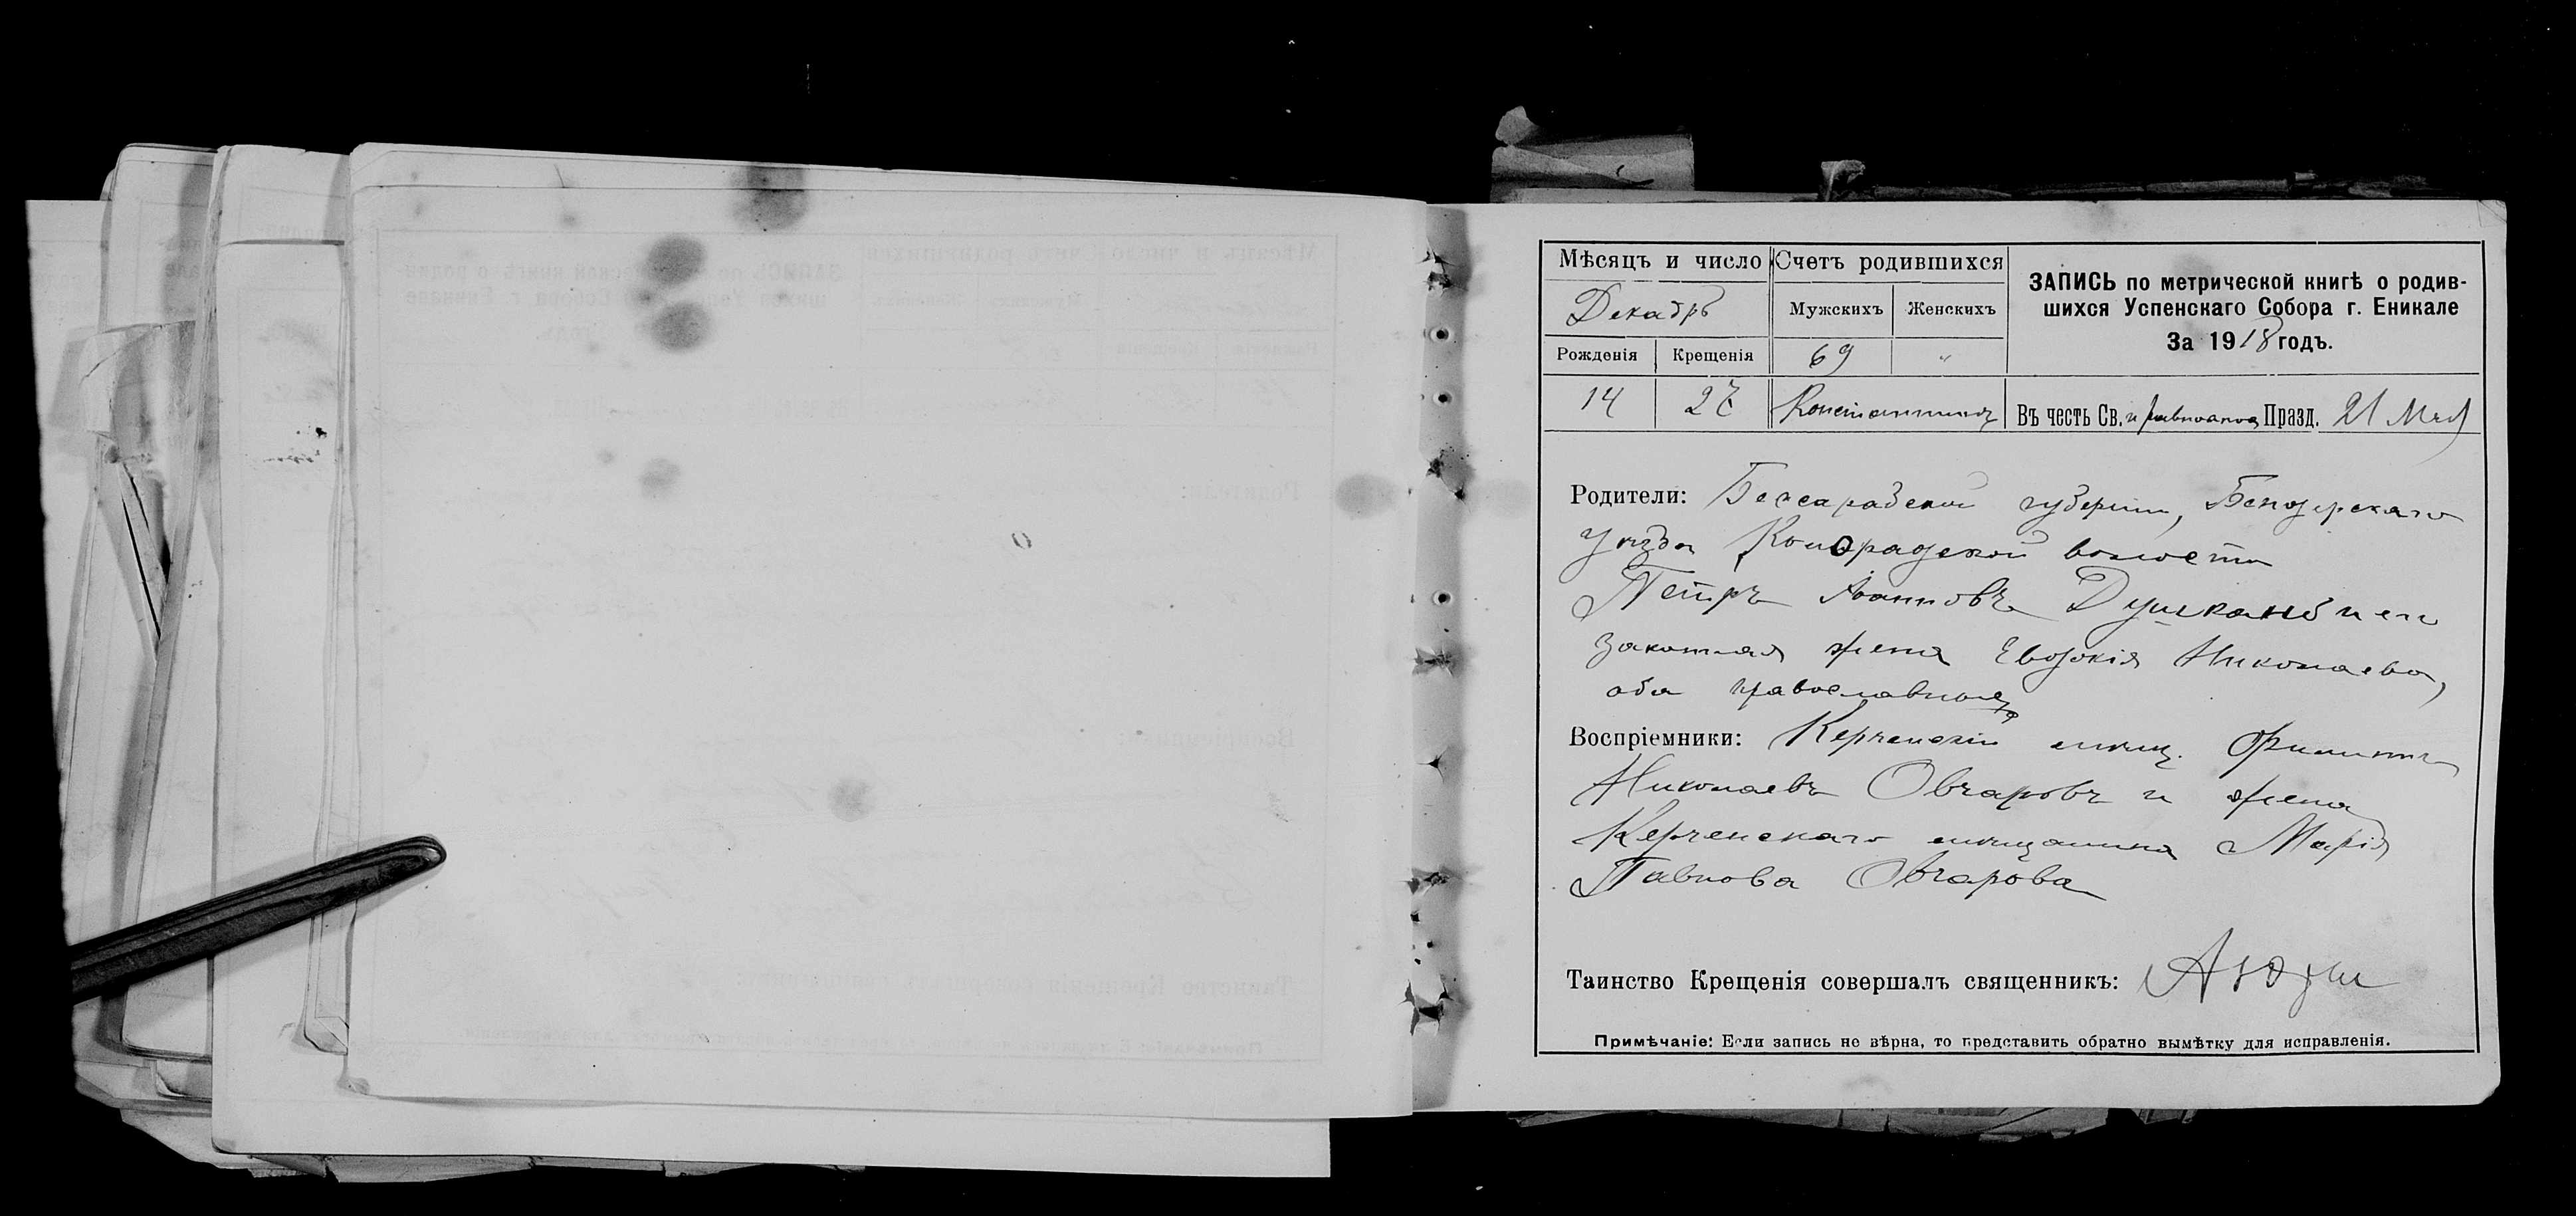 Мѣсяцъ и число
Счетъ родившихся
ЗАПИСЬ по метрической книгѣ о родив-
шихся Успенскаго Собора г. Еникале
За 1918 годъ.
Декабрь
Мужскихъ
Женскихъ
Рожденія
Крещенія
69
"
14
Константинъ
Въ честь Св. и равноапос Празд. 21 Мая
Родители: Бессарабской губерніи, Бендерскаго
уѣзда волости
Петръ Іоанновъ и его
законная жена Евдокія Николаева,
оба православные
Воспріемники: Керченскій мѣщ. Филиппъ
Николаевъ Овчаровъ и жена
Керченскаго мѣщанина Марія
Павлова Овчарова
Таинство Крещенія совершалъ священникъ:
Примѣчаніе: Если запись не вѣрна, то представить обратно вымѣтку для исправленія.